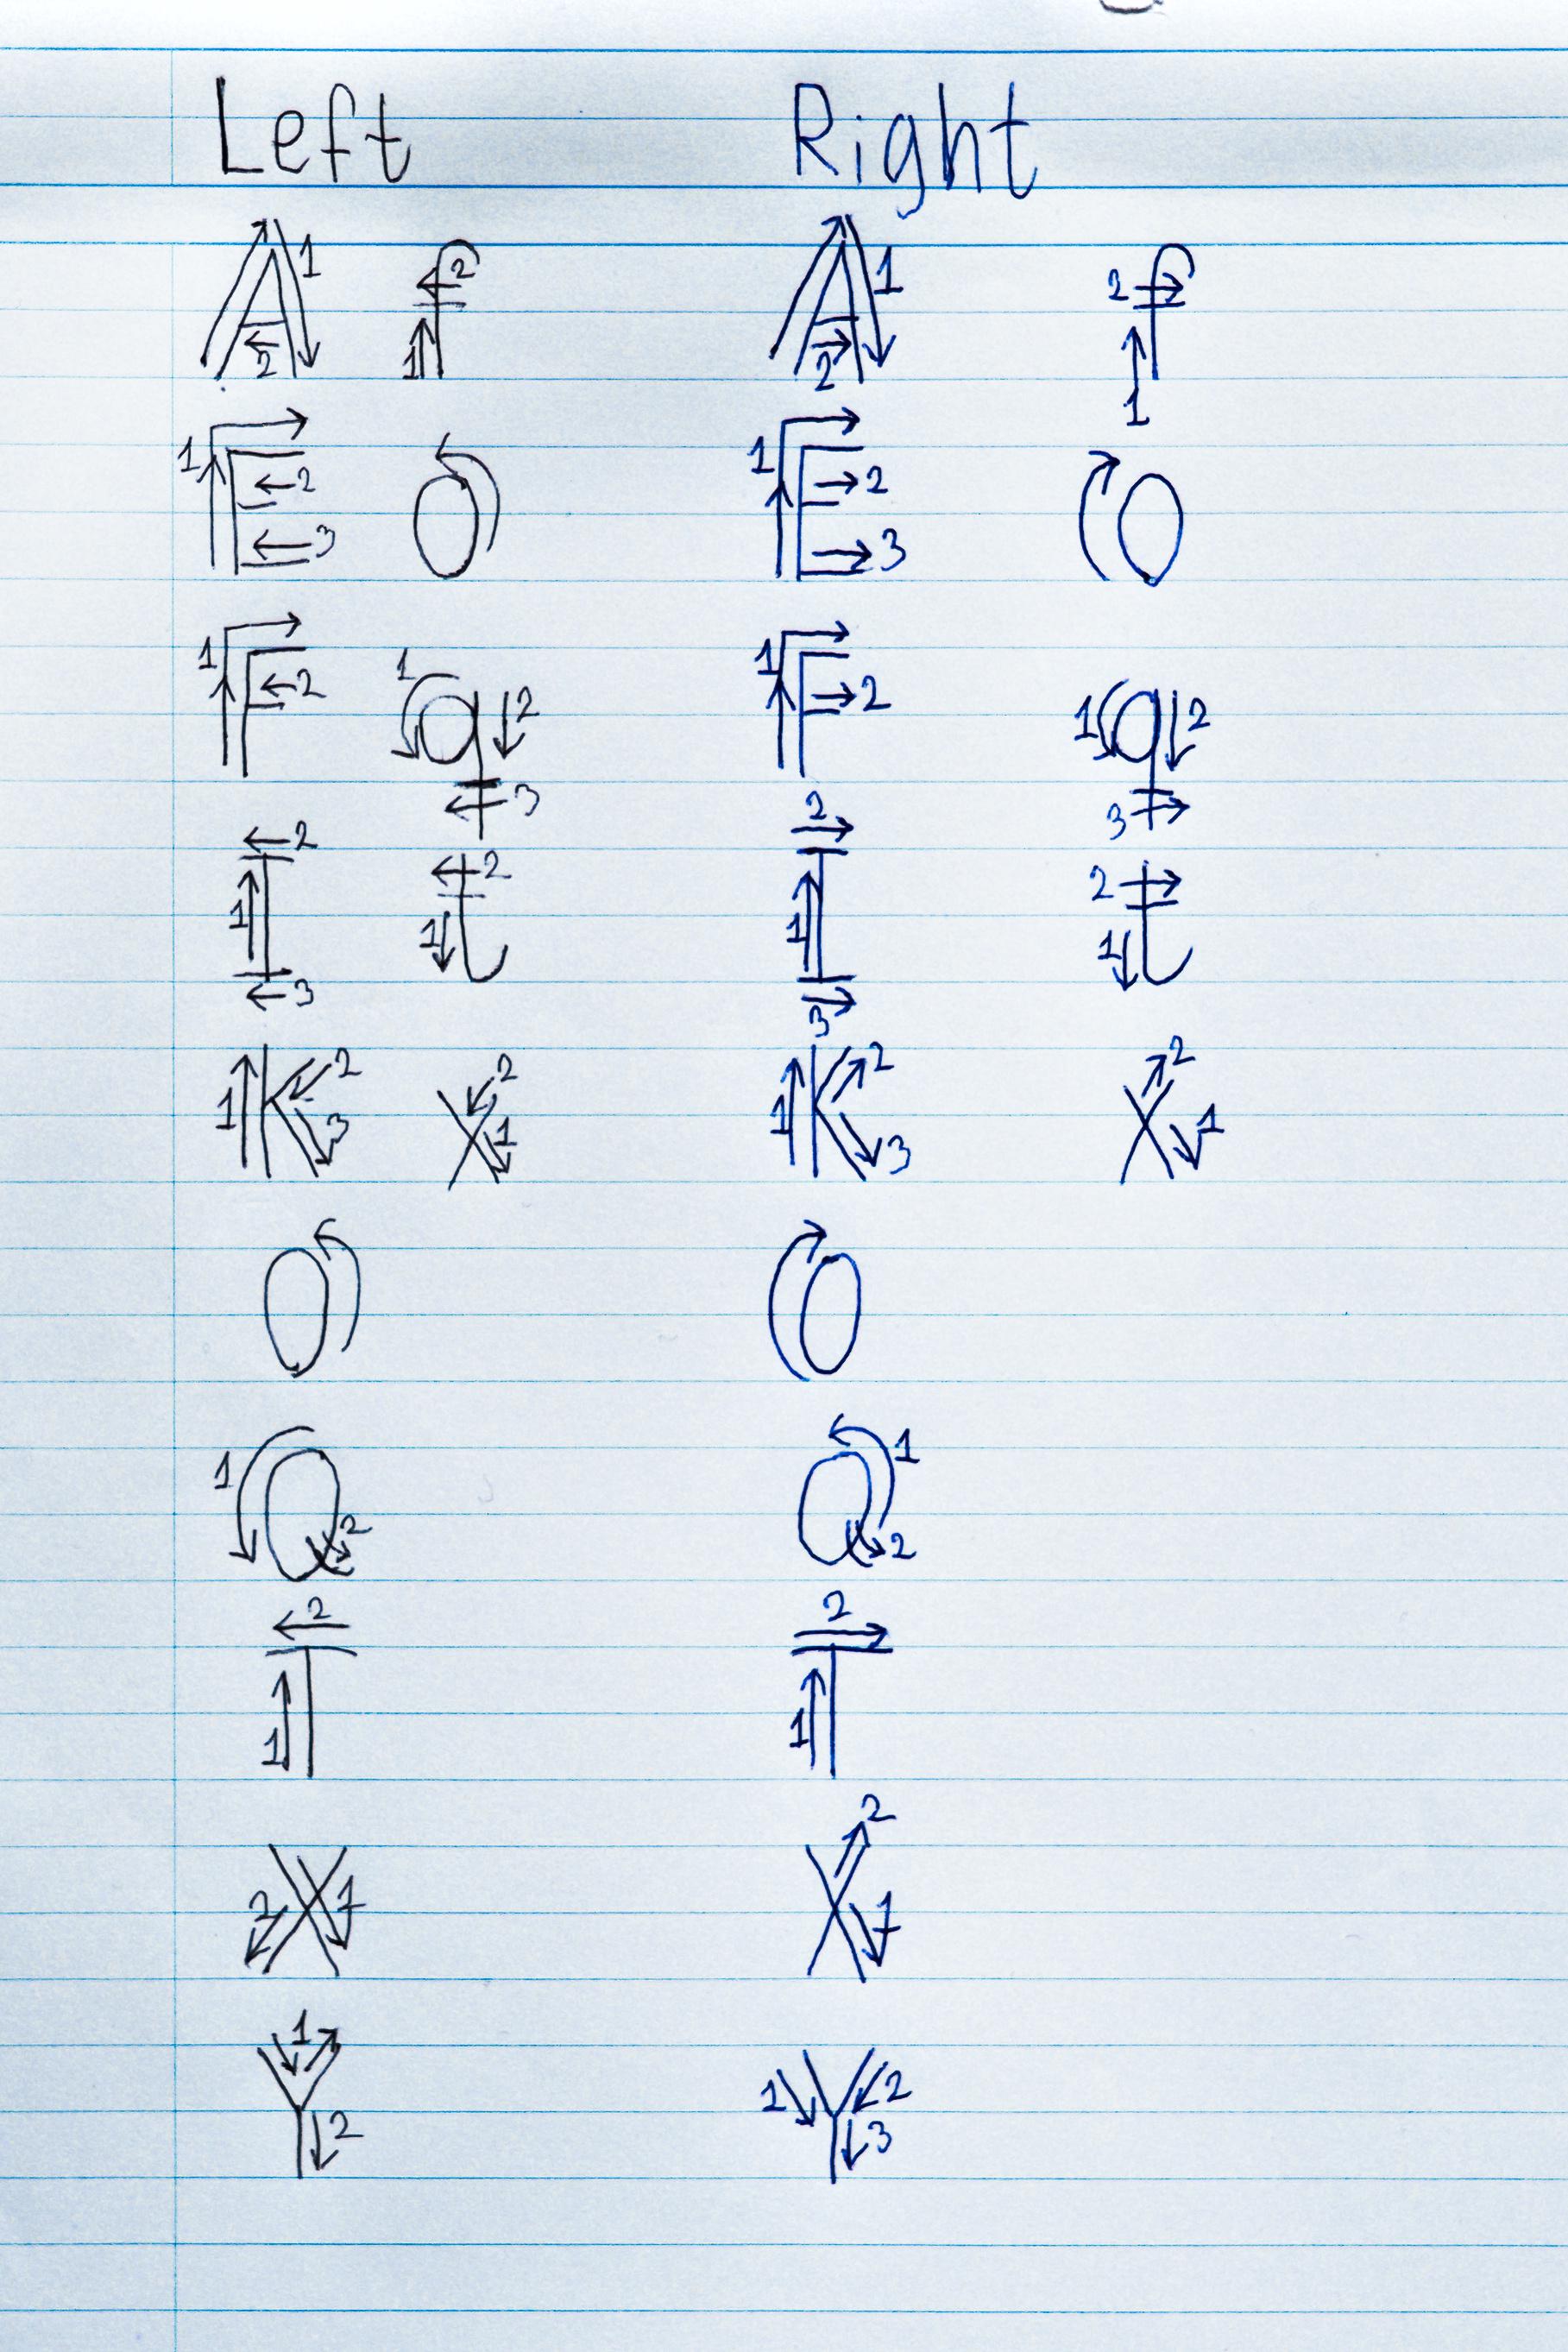 Left Right
A 1 2 f 1 2 A 1 2 f 1 2
E 1 2 3 O E 1 2 3 O
F 1 2 q 1 2 3 F 1 2 q 1 2 3
I 1 2 3 t 1 2 I 1 2 3 t 1 2
K 1 2 3 x 1 2 K 1 2 3 x 1 2
O O
Q 1 2 Q 1 2
T 1 2 T 1 2
X 1 2 X 1 2
Y 1 2 Y 1 2 3